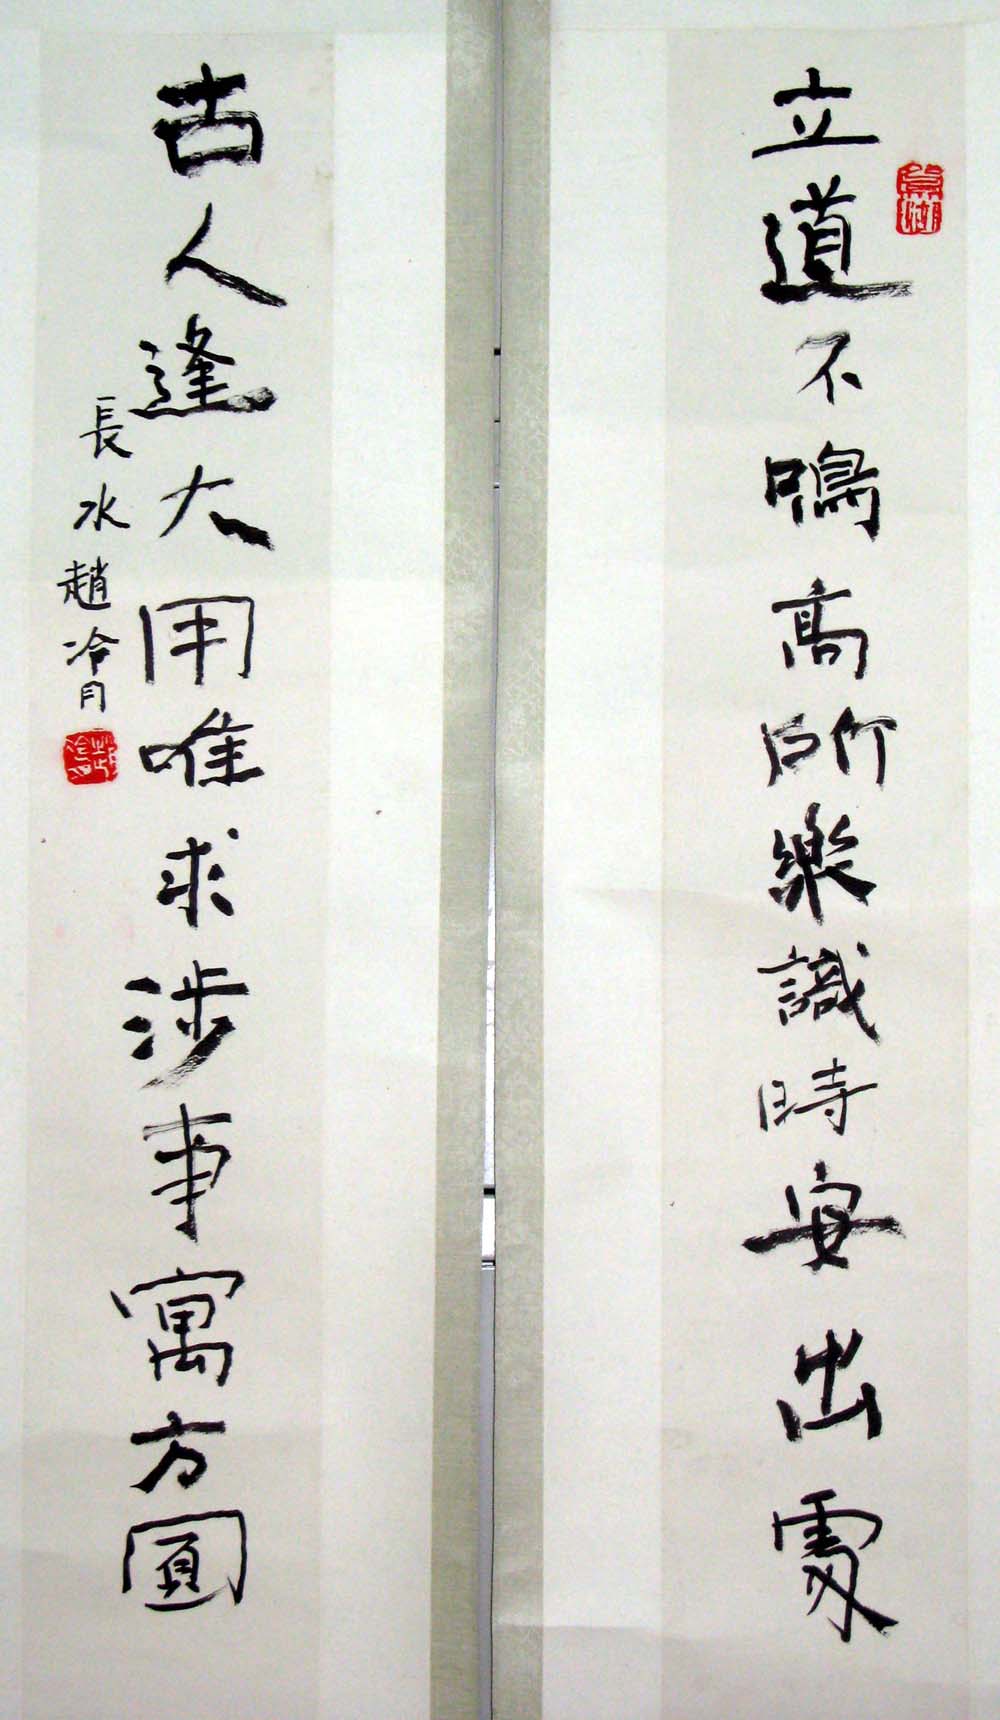 立道不鳴高所樂識時安出處
古人逢大用唯求涉事寓方圓
長水趙冷月